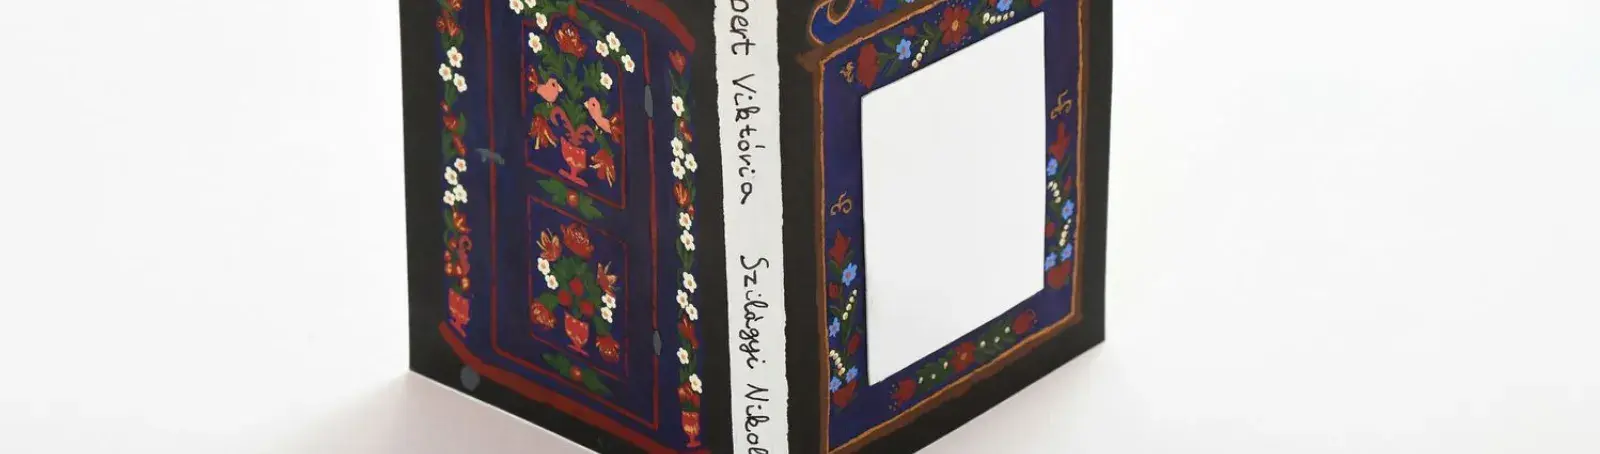 pert Viktória Szilágyi Nikol